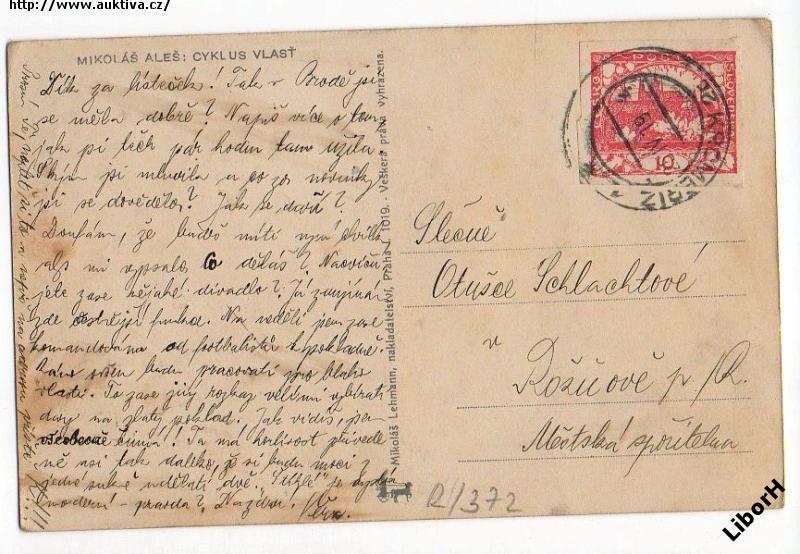 http://www.auktiva.cz/
MIKOLÁŠ ALEŠ: CYKLUS VLASŤ
Dík za lísteček! Tak v Brodě jsi
se měla dobře? Napiš více o tom
jak jsi těch pár hodin tam užila.
S kým jsi mluvila a co za novinky
jsi se dověděla? Jak se daří?
Doufám, že budeš míti chvilku
abys mi vypsala. Co děláš? Nacviču-
jete zase nějaké divadlo? Já zaujímám
zde funkce. Na neděli jsem zase
komandována od footbalistů k pokladně.
Ráno budu pracovati pro blaho
vlasti. To zase jiný rozkaz velí mi vybírati
dary na zlatý poklad. Jak vidíš, jsem
všeobecně činná! Ta má horlivost přivede
mě asi tak daleko, že si budu moci z
jedné sukně udělati dvě. "Štíhlé" je
moderní - pravda? Nazdar.
Mikoláš Lehmann, nakladatelství, Praha I. 1019. - Veškera práva vyhrazena.
KROMĚŘÍŽ
10
Slečně
Otušce Schlachtové
v
Rožnově p/R.
Městská spořitelna
R/372
LiborH